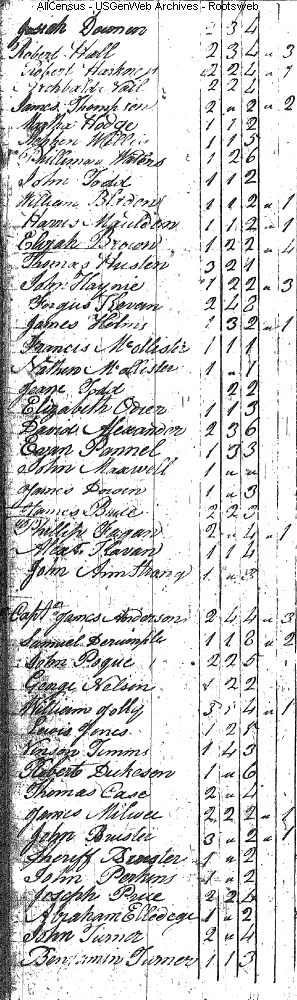 AllCensus - USGenWeb Archives - Rootsweb
Josiah 2 3 4
Robert Hall 2 3 4 " 3
Robert Harkness 2 2 4 " 7
Archibald 2 2 4
James Thompson 2 " 2 " 2
Martha Hodge 1 1 2
1 1 5
Philliman Waters 1 2 6
John Todd 1 1 2
William 1 1 2 " 1
Harris Mauldon 1 1 2 " 1
Elijah Brown 1 2 2 " 4
Thomas Husten 3 2 1
John Haynie 1 2 2 " 3
Angus Bevan 2 4 3
James Helms 1 3 2 " 1
Francis McOllister 1 1 1
Nathan McOllister 1 " 1
Todd 2 2
Elizabeth 1 1 3
David Alexander 2 3 6
Evan Pannel 1 3 3
John Maxwell 1 " "
James 1 " 3
James Bule 2 2 3
Phillip Fagan 2 " 4 " 1
Flavan 1 1 4
John Armstrong 1 " 3
Capt James Anderson 2 4 4 " 3
Samuel 1 1 3 " 2
John Pogue 2 2 5
George Nelson 1 2 2
William Jolly 3 1 4 " 1
Lewis Jones 1 2 1
Vinson Timms 1 4 3
Robert Dukeson 1 " 6
Thomas Case 2 " 4
James Milwee 2 2 2 " 1
John Brister 3 " 2 " 1
Sheriff Brister 1 " 2
John Perkins 1 " 2
Joseph Price 2 2 4
Abraham Elledege 1 " 2
John Turner 2 " 4
Benjamin Turner 1 1 3